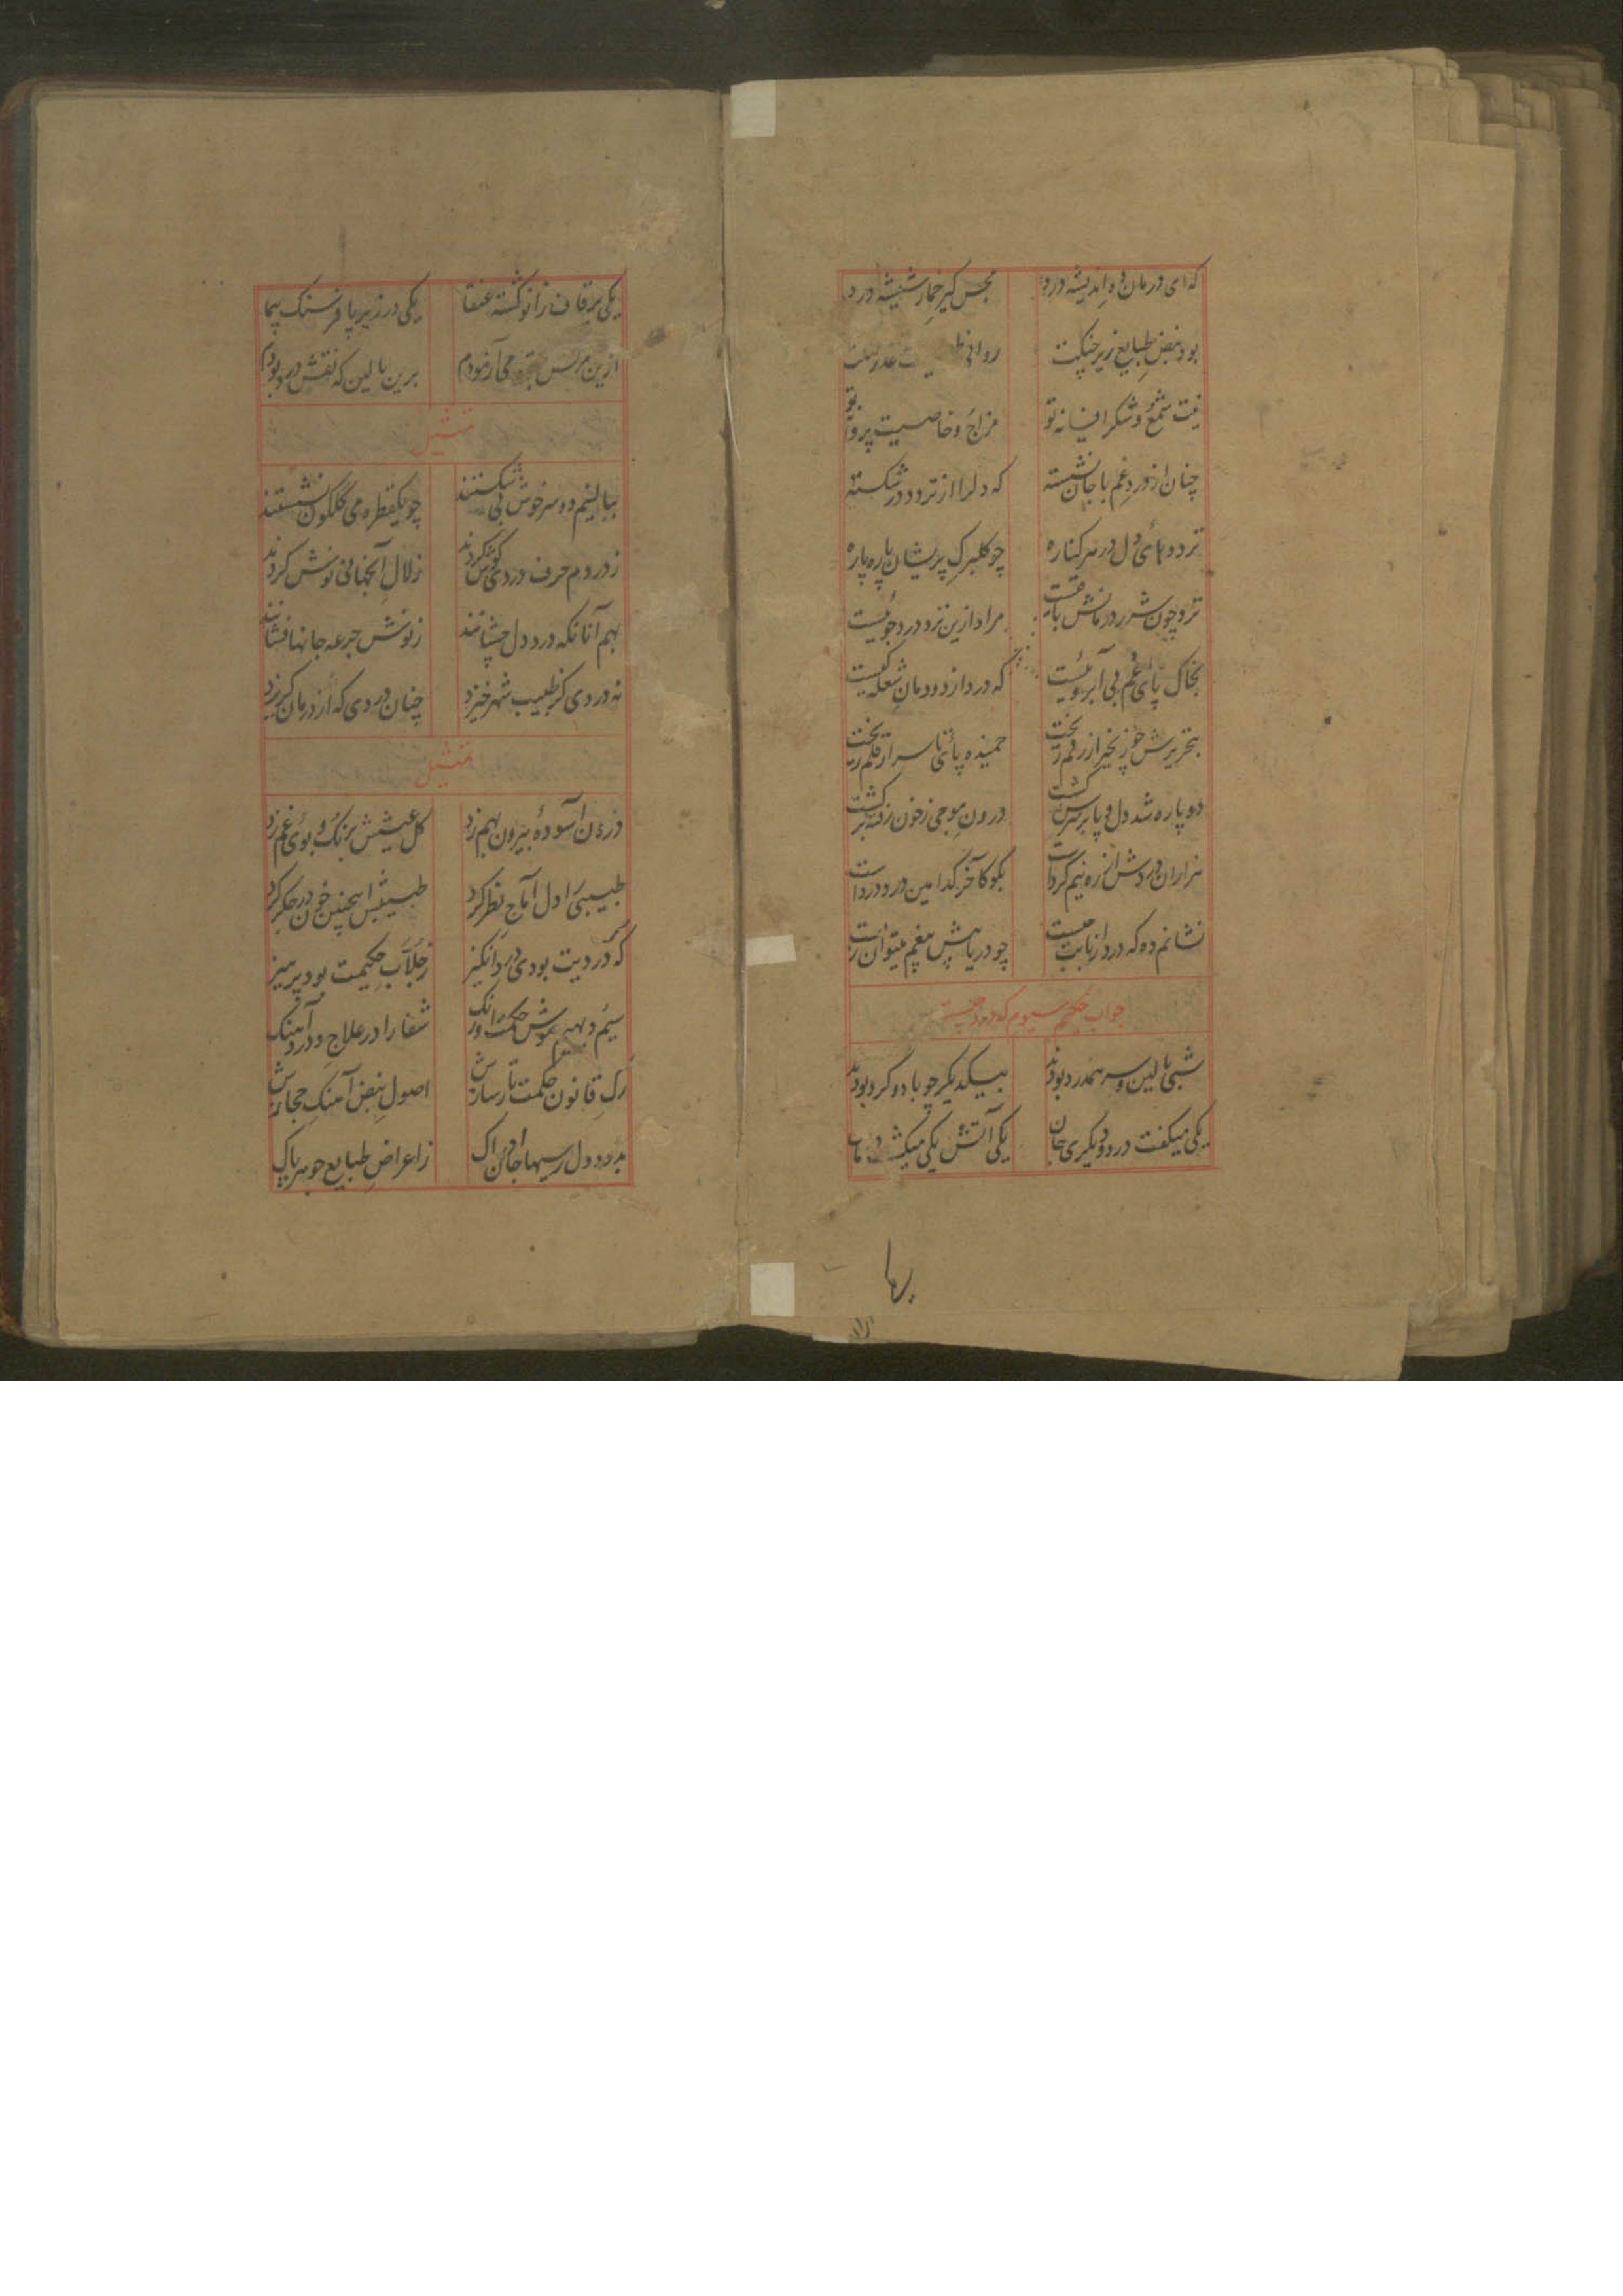 که ای درمان ده اندیشه درد مجس گیر خمار شیشه درد
بود نبض طبایع زیر چنگت روانی
شمع و شکر افسانه تو مزاج و خاصیت پروانه تو
چنان از درد غم با جان نشسته که دلرا از تردد در شکسته
تردد های دل در هر کناره چو گلبرک پریشان پاره پاره
چون شرر درمانش مراد ازین تردد درد جوئیست
بخاک پای غم بی آبروئیست که درد از دودمان شعله کیست
بتحریرش چو زنجیر از رقم ریخت خمیده پای تا سر از قلم ریخت
دو پاره شد دل و پا بر سرش گشت درون موجی زخون زد
هزاران درد دش از ره نیم گرداست بگو کآخر کدامین درد درداست
نشانم ده که درد از بابت چیست چو دریا بیش بیغم میتوان زیست
جواب حکیم سیوم که درد چیست
شبی بالین و سر همدرد بودند بیکدیگر چو باد و گرد بودند
یکی میگفت درد و دیگری جان یکی آتش یکی میکشت
یکی بر قاف زانو گشته عنقا یکی در زیر پا فرسنک پیما
ازین می آزمودم برین بالین که نقش درد بودم
تمثیل
ببالینم دو سرخوش بی شکستند چو یکقطره می گلگون نشستند
ز دردم حرف دردی گوش کردند زلال آنجهانی نوش کردند
بهم آنانکه درد دل چشانند ز نوش جرعه جانها فشانند
نه دردی کز طبیب شهر خیزد چنان دردی که از درمان گریزد
تمثیل
درون آسودۀ بیرون بهم زد گل عیشش برنک و بوی غم زد
طبیبی را دل آماج نظر کرد طبیبش اینچنین خون در جگر کرد
که دردیت بودی درد انگیز ز جلاب حکیمت بود پرهیز
شفا را در علاج درد آهنک
رک قانون حکمت تار سازش اصول نبض آهنک حجازش
بدرد دل رسیها جان ادراک ز اعراض طبایع جوهر پاک
بها